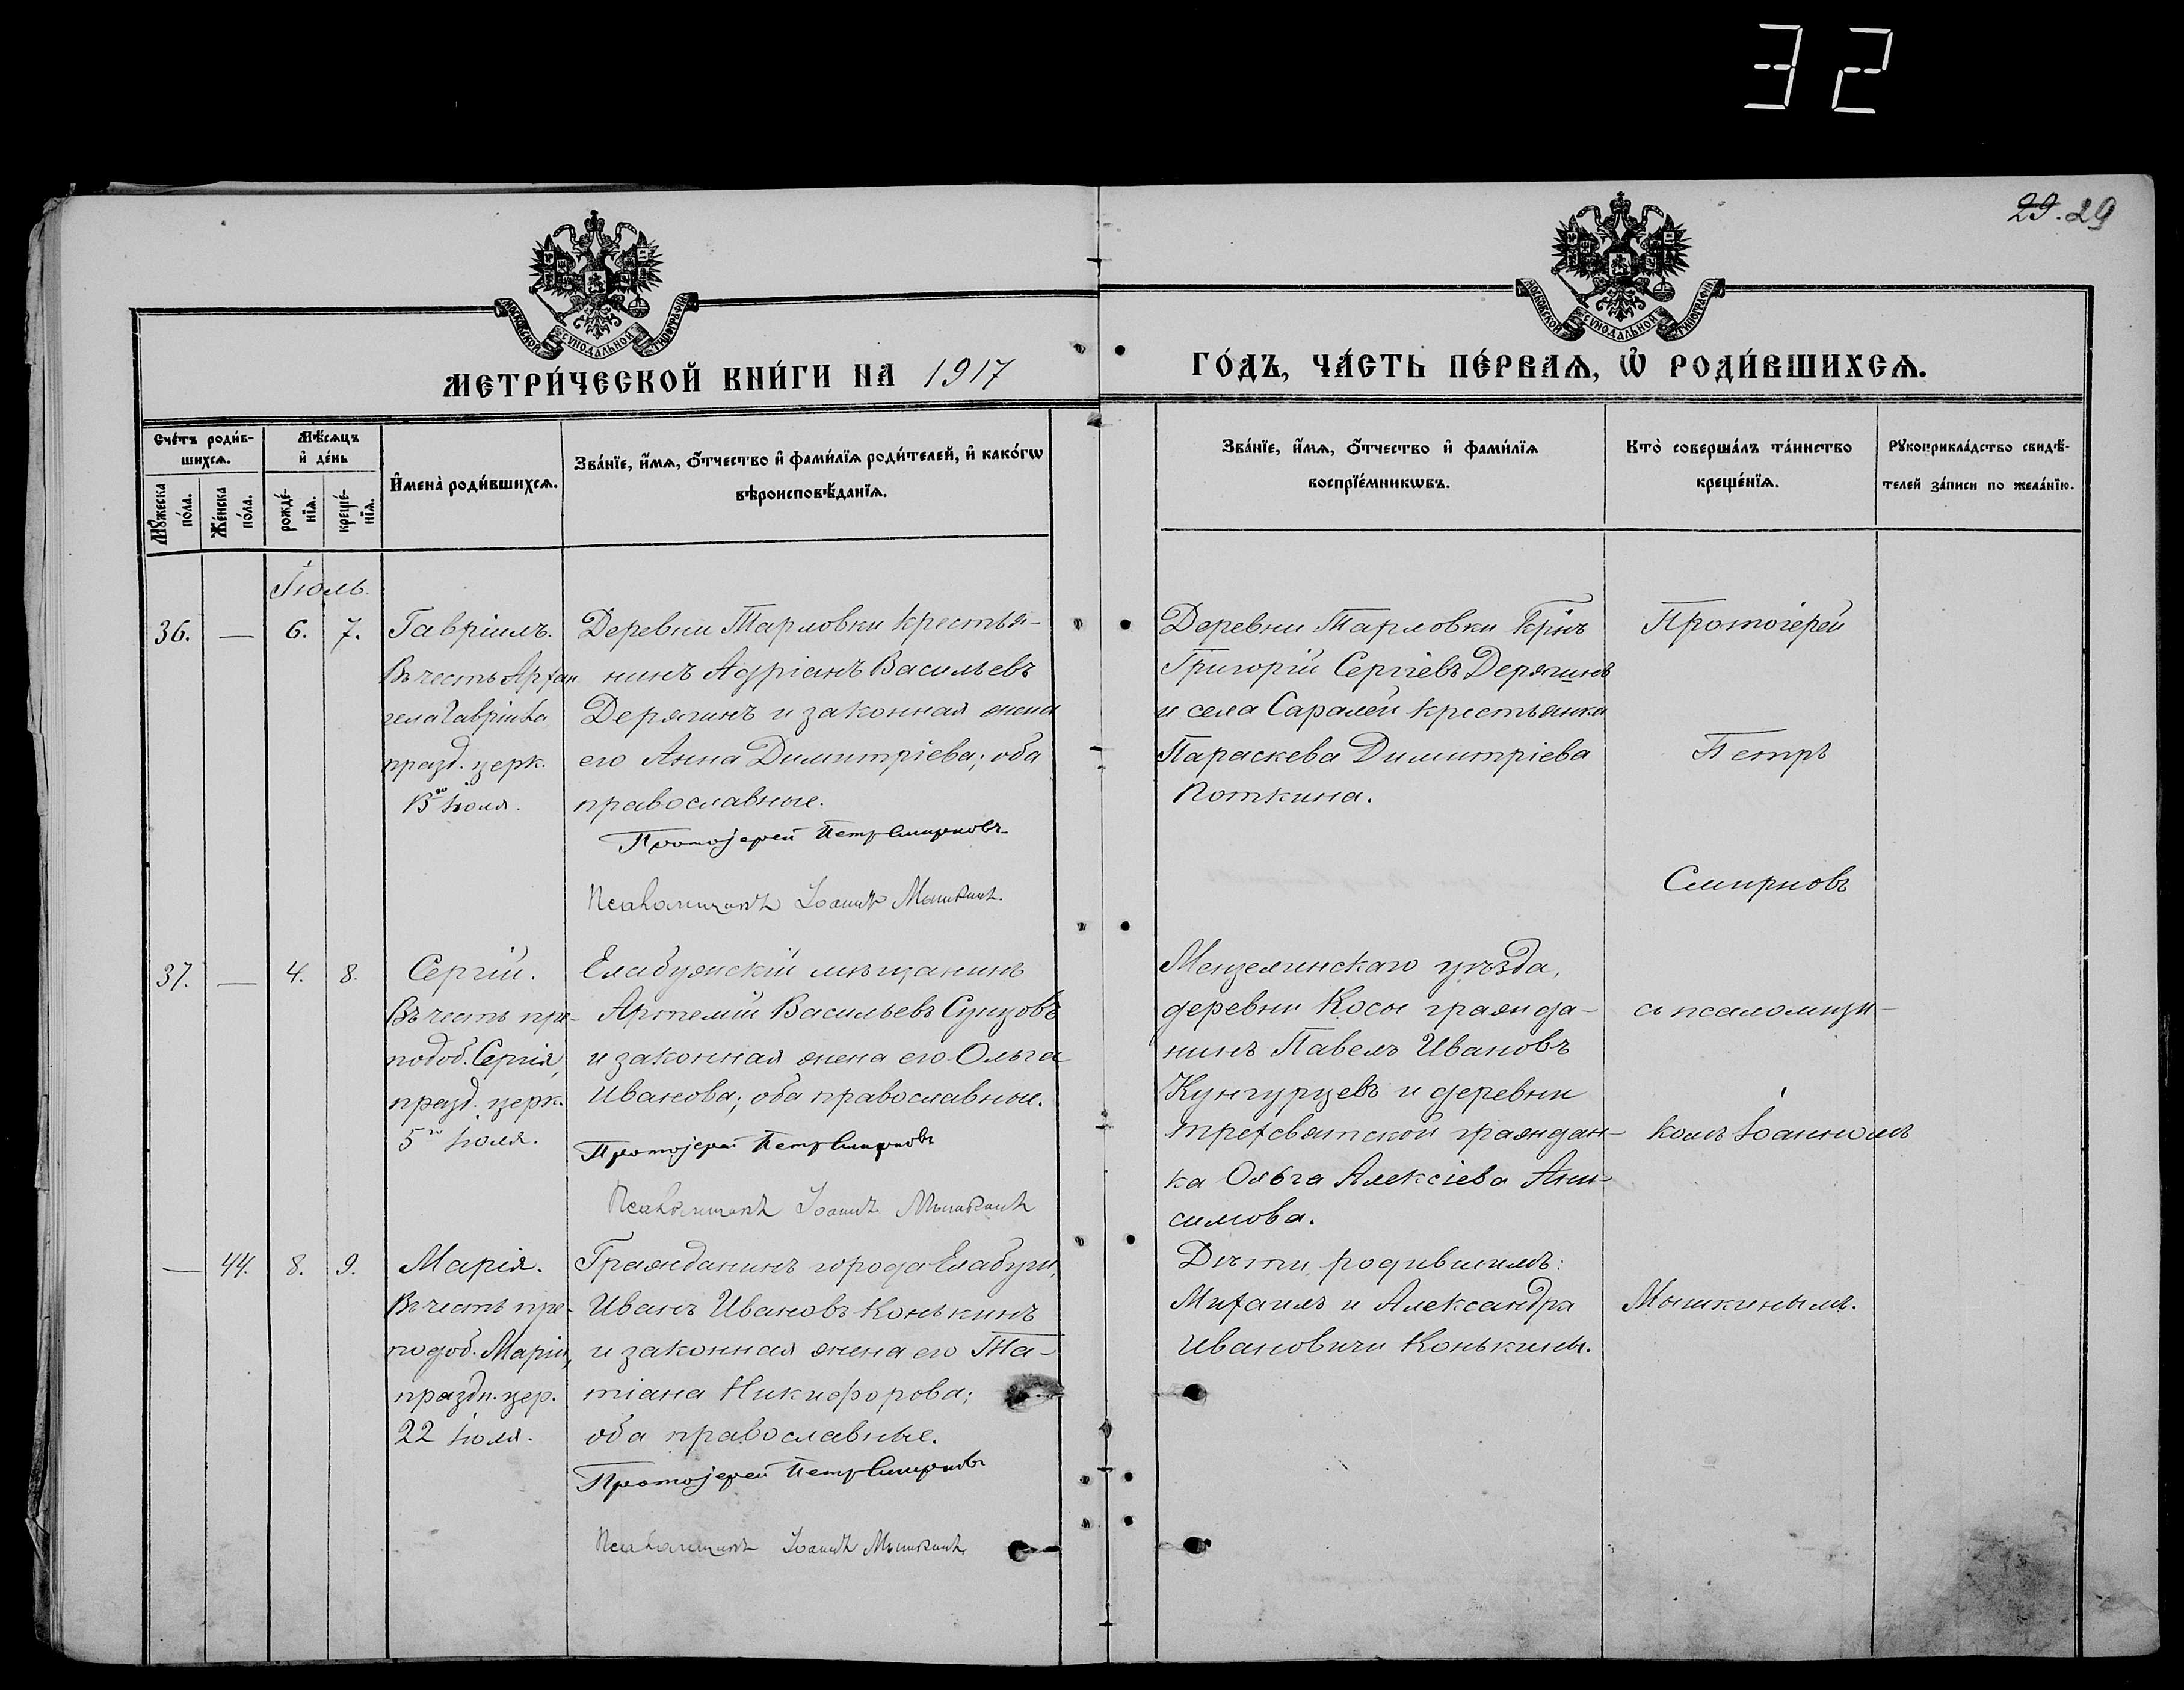 32
29. 29
МОСКОВСКОЙ СѴНОДАЛЬНОЙ ТИПОГРАФІИ
МОСКОВСКОЙ СѴНОДАЛЬНОЙ ТИПОГРАФІИ
МЕТРИ́ЧЕСКОЙ КНИ́ГИ НА 1917
ГО́ДЪ, ЧА́СТЬ ПЕ́РВАѦ, Ѡ҆ РОДИ́ВШИХСѦ.
Счéтъ роди́в-
шихсѧ.
Мꙋ́жеска
по́ла.
Же́нска
по́ла.
Мѣ́сѧцъ
и҆ де́нь
рожде́-
нїѧ.
креще́-
нїѧ.
И҆мена̀ роди́вшихсѧ.
Зва́нїе, и҆́мѧ, ѻ҆́тчество и҆ фами́лїѧ роди́телей, и҆ како́гѡ
вѣроисповѣ́данїѧ.
Зва́нїе, и҆́мѧ, ѻ҆́тчество и҆ фами́лїѧ
воспрїе́мникѡвъ.
Кто̀ соверша́лъ та́инство
креще́нїѧ.
Рꙋкоприкла́дство свидѣ́-
телей за́писи по жела́нїю.
Іюль.
36. — 6. 7.
Гавріилъ.
Въ честь Архан
гела Гавріила
празд. церк.
13го Іюля.
Деревни Тарловки крестья-
нинъ Адріанъ Васильевъ
Дерягинъ и законная жена
его Анна Димитріева; оба
православные.
Протоjерей Петръ Смирновъ
Псаломщикъ Іоаннъ Мышкинъ.
Деревни Тарловки Крнъ
Григорій Сергіевъ Дерягинъ
и села Саралей крестьянка
Параскева Димитріева
Поткина.
Протоіерей
Петръ
Смирновъ
37. — 4. 8.
Сергій.
Въ честь пре-
подоб. Сергія,
празд. церк.
5го Іюля.
Елабужскій мѣщанинъ
Артемій Васильевъ Сунцовъ
и законная жена его Ольга
Иванова; оба православные.
Протоjерей Петръ Смирновъ
Псаломщикъ Іоаннъ Мышкинъ
Мензелинскаго уѣзда,
деревни Косы гражда-
нинъ Павелъ Ивановъ
Кунгурцевъ и деревни
Трехсвятской граждан-
ка Ольга Алексіева Ани-
симова.
съ псаломщи-
комъ Іоанномъ
— 44. 8. 9.
Марія.
Въ честь пре-
подоб. Маріи,
праздн. цер.
22 Іюля.
Гражданинъ города Елабуги,
Иванъ Ивановъ Конькинъ
и законная жена его Та-
тіана Никифорова;
оба православные.
Протоjерей Петръ Смирновъ
Псаломщикъ Іоаннъ Мышкинъ
Дѣти родившимъ:
Михаилъ и Александра
Ивановичи Конькины.
Мышкинымъ.